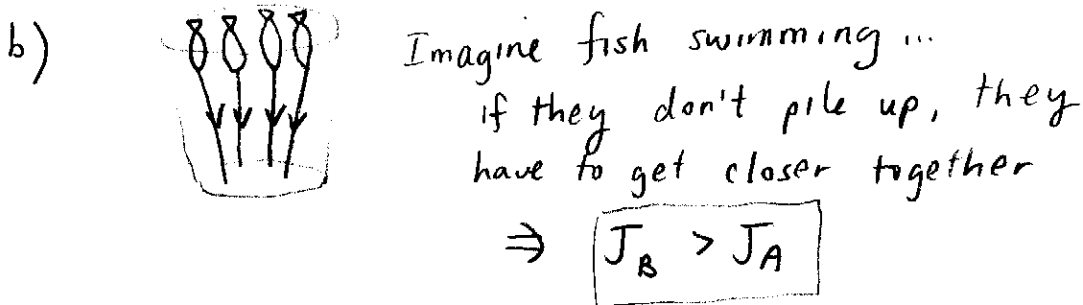 b)
Imagine fish swimming ...
if they don't pile up, they
have to get closer together
⇒ J_B > J_A